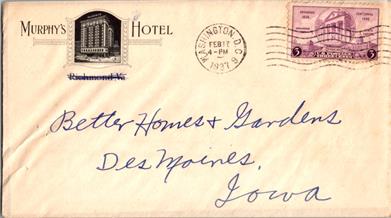 MURPHY'S HOTEL
Richmond, Va.
WASHINGTON, D.C. 6
FEB 17
4-PM
1937
3 3
Better Homes & Gardens
Des Moines,
Iowa